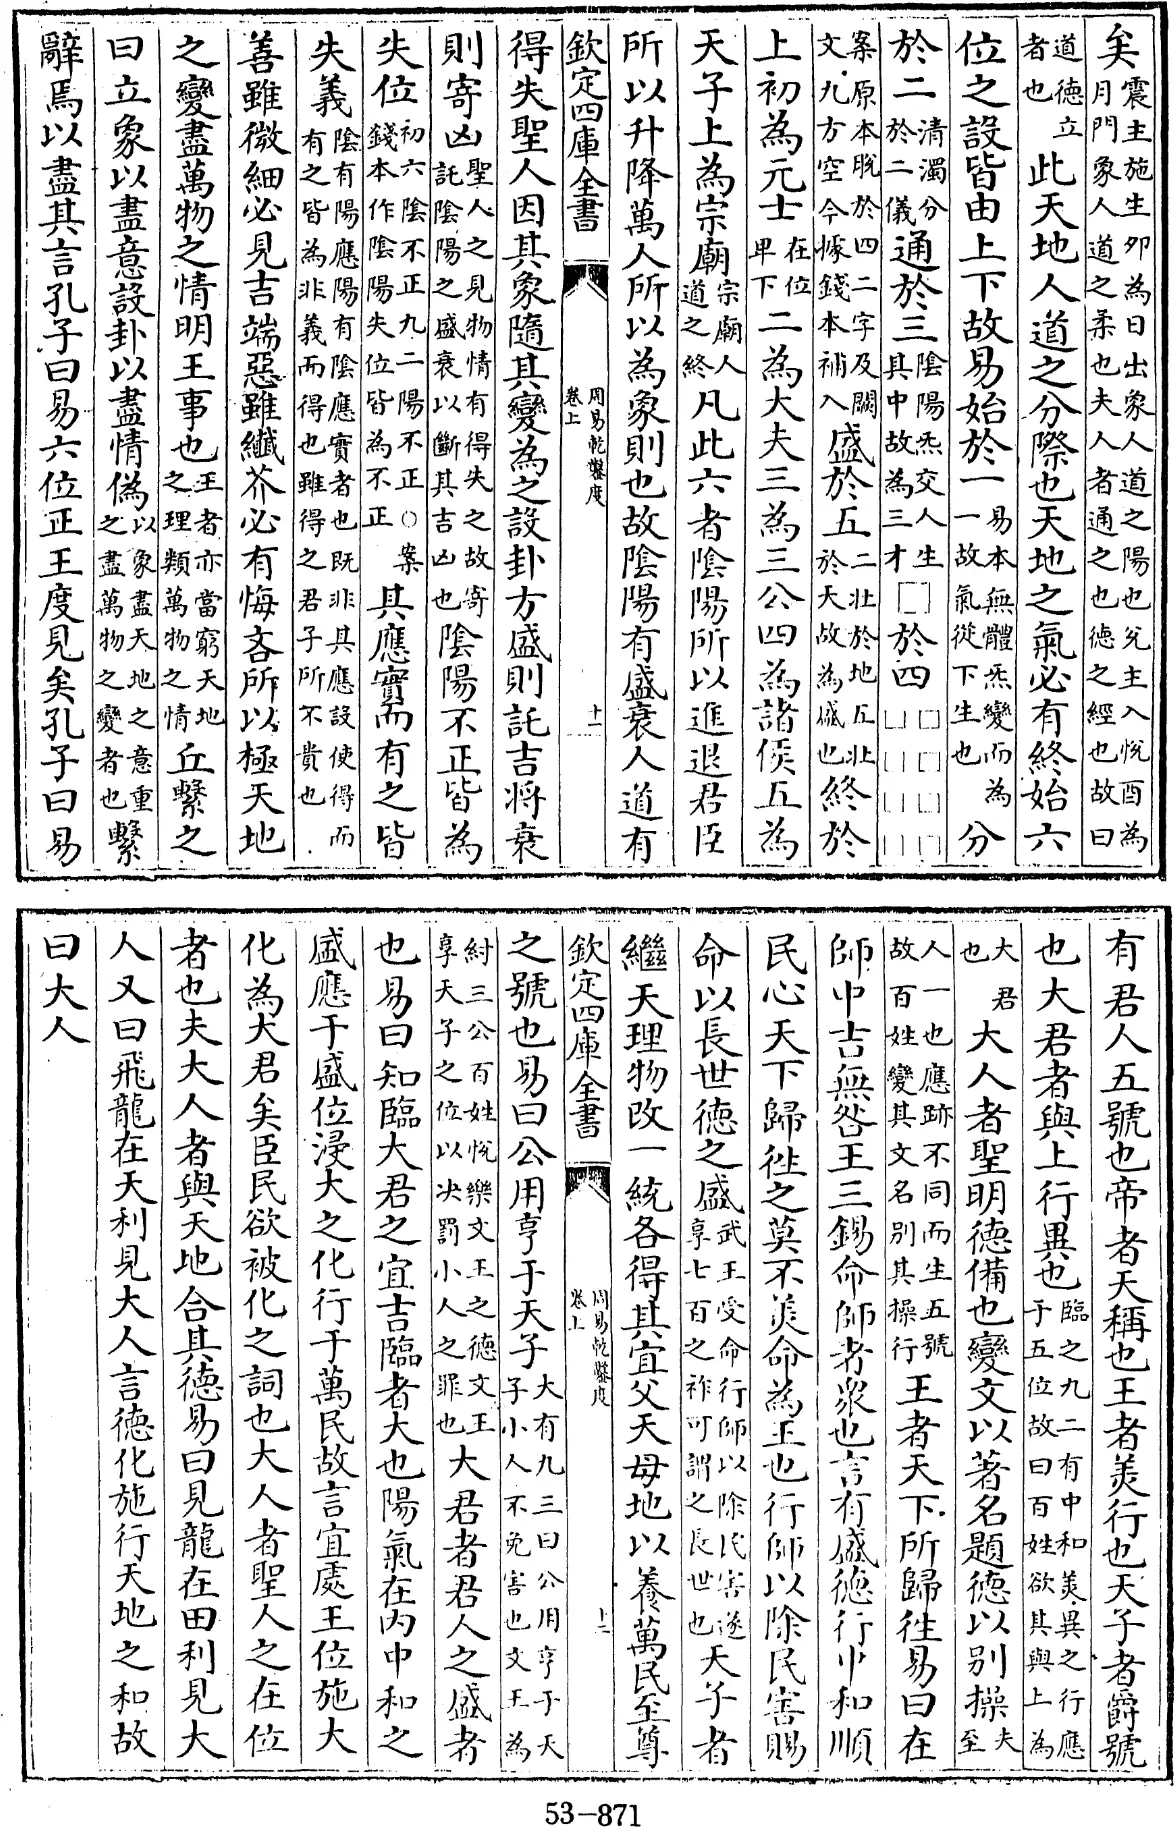 矣震主施生卯為日出象人道之陽也兌主入悅酉為月門象人道之柔也夫人者通之也德之經也故曰
道德立者也此天地人道之分際也天地之氣必有終始六
位之設皆由上下故易始於一易本無體炁變而為一故氣從下生也分
於二清濁分於二儀通於三陰陽炁交人生其中故為三才□於四□□□□□□□□
案原本脫於四二字及闕文九方空今據錢本補入盛於五二壯於地五壯於天故為盛也終於
上初為元士在位卑下二為大夫三為三公四為諸侯五為
天子上為宗廟宗廟人道之終凡此六者陰陽所以進退君臣
所以升降萬人所以為象則也故陰陽有盛衰人道有
欽定四庫全書 周易乾鑿度 卷上 十一
得失聖人因其象隨其變為之設卦方盛則託吉將衰
則寄凶聖人之見物情有得失之故寄託陰陽之盛衰以斷其吉凶也陰陽不正皆為
失位初六陰不正九二陽不正○案錢本作陰陽失位皆為不正其應實而有之皆
失義陰有陽應陽有陰應實者也既非其應設使得而有之皆為非義而得也雖得之君子所不貴也
善雖微細必見吉端惡雖纖芥必有悔吝所以極天地
之變盡萬物之情明王事也王者亦當窮天地之理類萬物之情丘繫之
曰立象以盡意設卦以盡情偽以象盡天地之意重之盡萬物之變者也繫
辭焉以盡其言孔子曰易六位正王度見矣孔子曰易
有君人五號也帝者天稱也王者美行也天子者爵號
也大君者與上行異也臨之九二有中和美異之行應于五位故曰百姓欲其與上為
大君也大人者聖明德備也變文以著名題德以別操夫至
人一也應跡不同而生五號故百姓變其文名別其操行王者天下所歸往易曰在
師中吉無咎王三錫命師者眾也言有盛德行中和順
民心天下歸往之莫不美命為王也行師以除民害賜
命以長世德之盛武王受命行師以除民害遂享七百之祚可謂之長世也天子者
繼天理物改一統各得其宜父天母地以養萬民至尊
欽定四庫全書 周易乾鑿度 卷上 十二
之號也易曰公用亨于天子大有九三曰公用亨于天子小人不免害也文王為
紂三公百姓悅樂文王之德文王享天子之位以決罰小人之罪也大君者君人之盛者
也易曰知臨大君之宜吉臨者大也陽氣在內中和之
盛應于盛位浸大之化行于萬民故言宜處王位施大
化為大君矣臣民欲被化之詞也大人者聖人之在位
者也夫大人者與天地合其德易曰見龍在田利見大
人又曰飛龍在天利見大人言德化施行天地之和故
曰大人
53-871